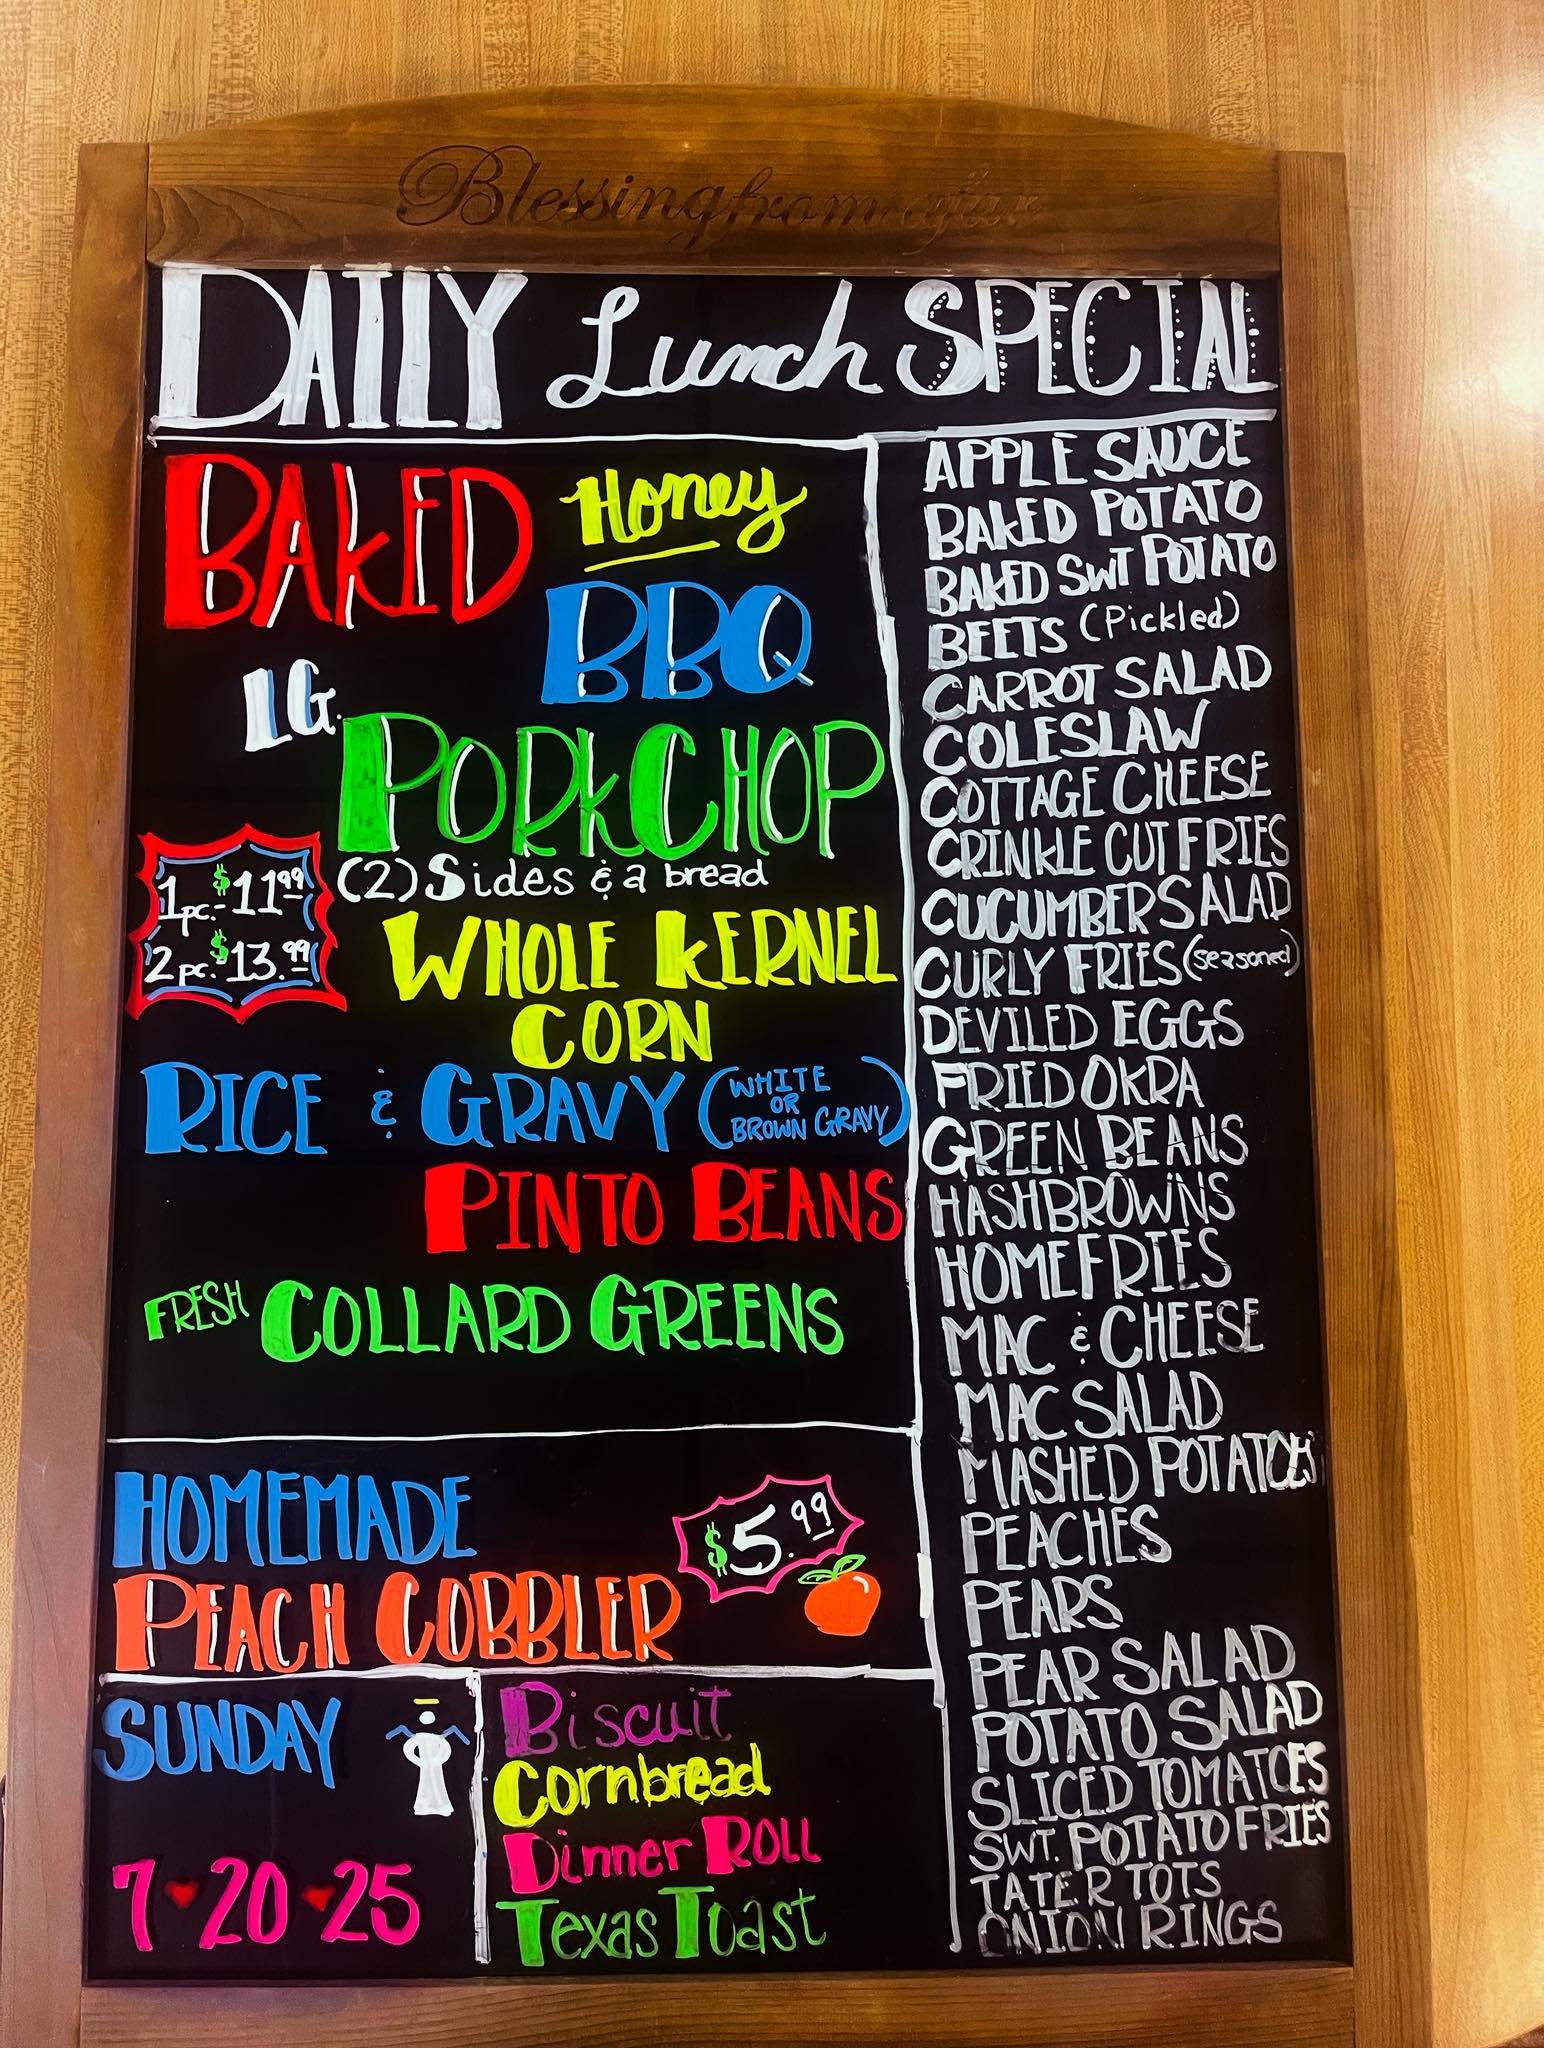 Blessing from afar
DAILY Lunch SPECIAL
BAKED Honey
BBQ
LG.
PORKCHOP
1pc.-$11.99
2pc.-$13.99
(2) Sides & a bread
WHOLE KERNEL
CORN
RICE & GRAVY (WHITE
OR
BROWN GRAVY)
PINTO BEANS
FRESH COLLARD GREENS
HOMEMADE
PEACH COBBLER
$5.99
SUNDAY
7 20 25
Biscuit
Cornbread
Dinner ROLL
Texas Toast
APPLE SAUCE
BAKED POTATO
BAKED SWT POTATO
BEETS (Pickled)
CARROT SALAD
COLESLAW
COTTAGE CHEESE
CRINKLE CUT FRIES
CUCUMBER SALAD
CURLY FRIES (seasoned)
DEVILED EGGS
FRIED OKRA
GREEN BEANS
HASHBROWNS
HOMEFRIES
MAC & CHEESE
MAC SALAD
MASHED POTATOES
PEACHES
PEARS
PEAR SALAD
POTATO SALAD
SLICED TOMATOES
SWT. POTATO FRIES
TATER TOTS
ONION RINGS